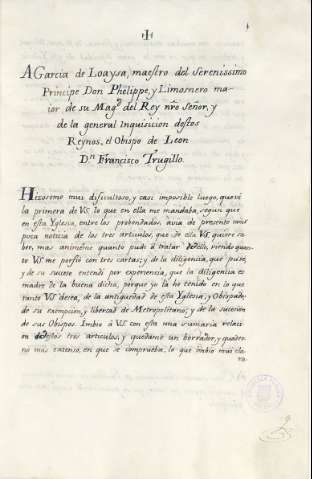 A Garcia de Loaysa, maestro del Serenissimo
Principe Don Phelippe, y Limosnero ma-
ior de su Magd. del Rey nro Señor, y
de la general Inquisicion destos
Reynos, el Obispo de Leon
Dn. Francisco Trugillo.
Hizoseme mui dificultoso, y casi imposible luego, que vi
la primera de VS. lo que en ella me mandaba, segun que
en esta Yglesia, entre los prebendados, avia de presente mui
poca noticia de los tres articulos, que de ella VS. quiere sa-
ber, mas animéme quanto pude á tratar dello, viendo quan-
to VS. me persuadió con tres cartas; y de la diligencia, que puse,
y de su suceso entendi por experiencia, que la diligencia es
madre de la buena dicha, porque yo la he tenido en lo que
tanto VS. desea, de la antiguedad de esta Yglesia, y Obispado,
de su exempcion, y libertad de Metropolitano; y de la sucesion
de sus Obispos. Imbio á VS. con esta una sumaria relaci-
on destos tres articulos, y quedame un borrador, y quader-
no mas extenso, en que se comprueba, lo que imbio mui cla-
ro.